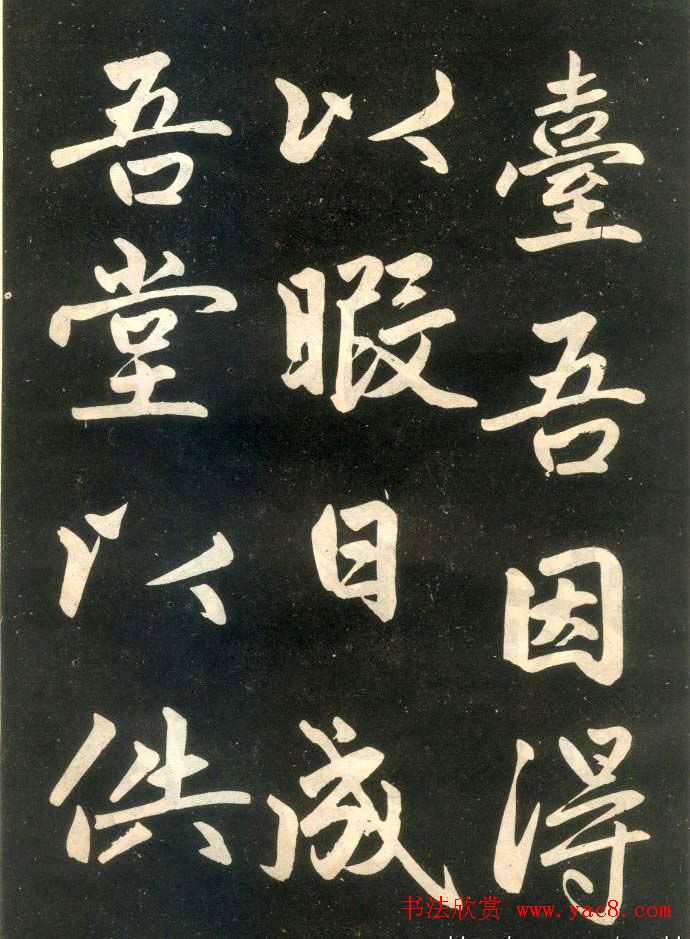 臺吾因得
以暇日成
吾堂以供
书法欣赏 www.yac8.com